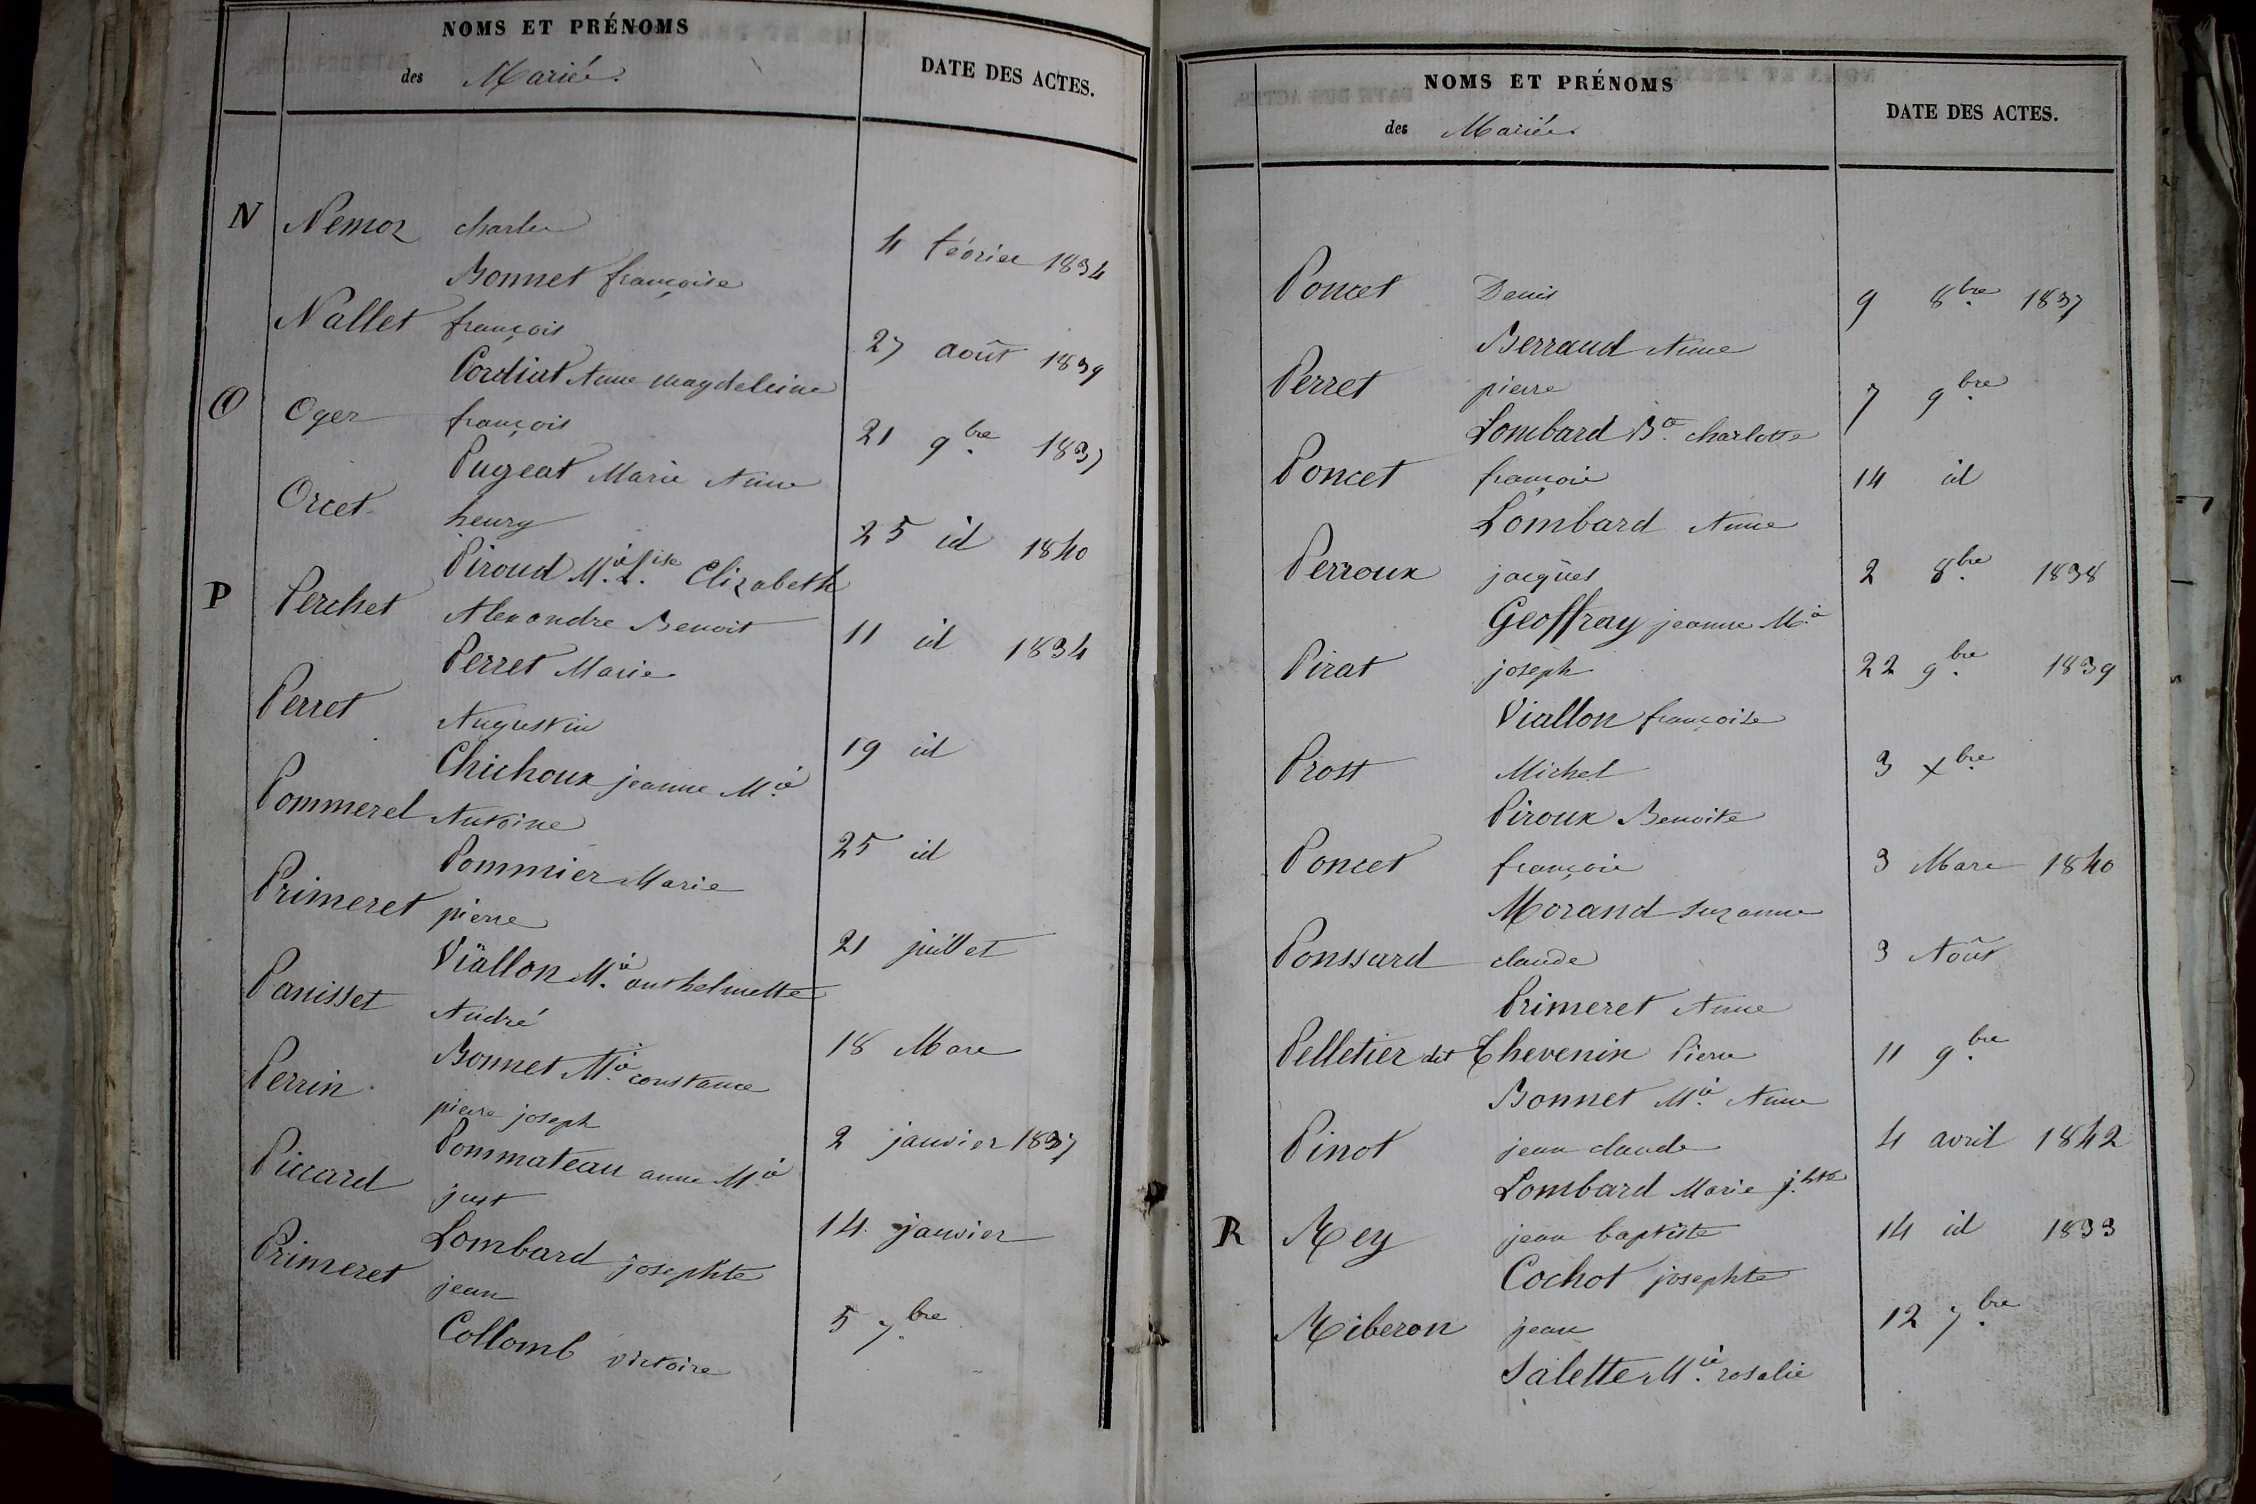 NOMS ET PRÉNOMS
des Mariés.
DATE DES ACTES.
N Nemoz charles 4 février 1834
Bonnet françoise
Nallet françois 27 août 1839
Cordiat Anne magdeleine
O Oger françois 21 9bre 1837
Pugeat Marie Anne
Orcet henry 25 id 1840
Piroud Mie Lise Elizabeth
P Perchet Alexandre Benoit 11 id 1834
Perret Marie
Perret Augustin 19 id
Chichoux jeanne Mie
Pommerel Antoine 25 id
Pommier Marie
Primeret pierre 21 juillet
Viallon Mie anthelmette
Panisset André 18 Mars
Bonnet Mie constance
Perrin pierre joseph 2 janvier 1837
Pommateau anne Mie
Piccard just 14 janvier
Lombard josephte
Primeret jean 5 7bre
Collomb victoire
NOMS ET PRÉNOMS
des Mariés
DATE DES ACTES.
Poncet Denis 9 8bre 1837
Berraud Anne
Perret pierre 7 9bre
Lombard Bte charlotte
Poncet françois 14 id
Lombard Anne
Perroux jacques 2 8bre 1838
Geoffray jeanne Mie
Pirat joseph 22 9bre 1839
Viallon françoise
Prost Michel 3 Xbre
Piroux Benoite
Poncet françois 3 Mars 1840
Morand suzanne
Ponssard claude 3 Août
Primeret Anne
Pelletier dit Thevenin Pierre 11 9bre
Bonnet Mie Anne
Pinot jean claude 4 avril 1842
Lombard Marie jhte
R Rey jean baptiste 14 id 1833
Cochot josephte
Riberon jean 12 7bre
Salette Mie rosalie